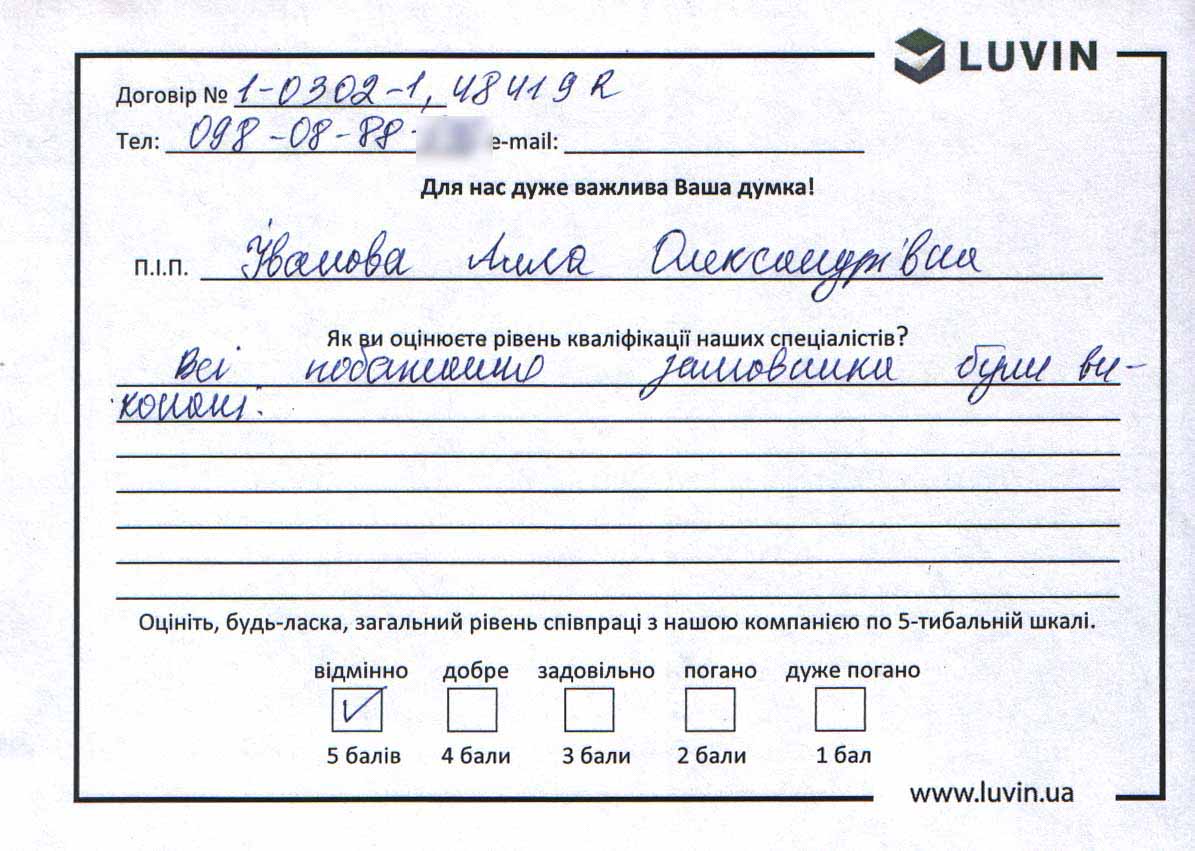 LUVIN
Договір № 1-0302-1, 48419R
Тел: 098-08-88- e-mail:
Для нас дуже важлива Ваша думка!
П.І.П. Іванова Алла Олександрівна
Як ви оцінюєте рівень кваліфікації наших спеціалістів?
Всі побажання замовника були ви-
конані.
Оцініть, будь-ласка, загальний рівень співпраці з нашою компанією по 5-тибальній шкалі.
відмінно добре задовільно погано дуже погано
5 балів 4 бали 3 бали 2 бали 1 бал
www.luvin.ua